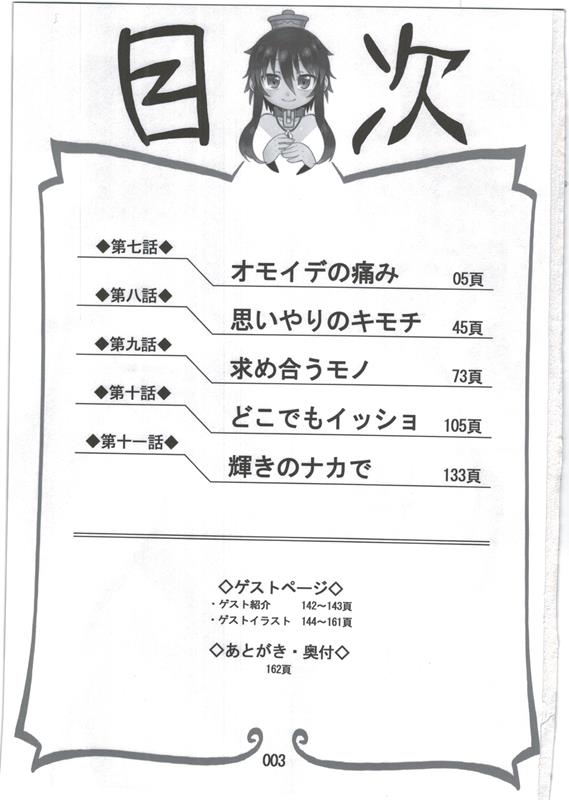 目次
◆第七話◆
オモイデの痛み 05頁
◆第八話◆
思いやりのキモチ 45頁
◆第九話◆
求め合うモノ 73頁
◆第十話◆
どこでもイッショ 105頁
◆第十一話◆
輝きのナカで 133頁
◇ゲストページ◇
・ゲスト紹介 142～143頁
・ゲストイラスト 144～161頁
◇あとがき・奥付◇
162頁
003